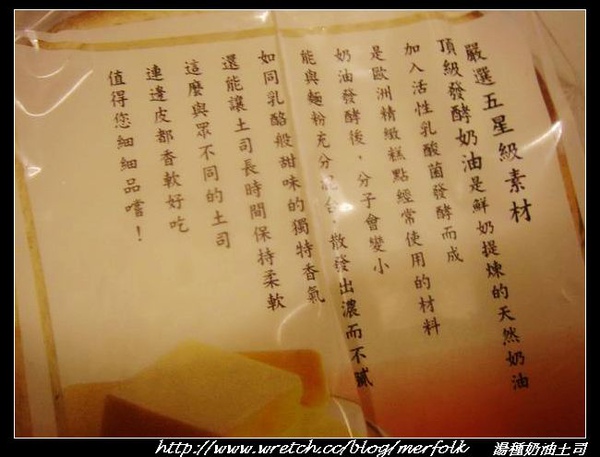 嚴選五星級素材
頂級發酵奶油是鮮奶提煉的天然奶油
加入活性乳酸菌發酵而成
是歐洲精緻糕點經常使用的材料
奶油發酵後，分子會變小
能與麵粉充分配合，散發出濃而不膩
如同乳酪般甜味的獨特香氣
還能讓土司長時間保持柔軟
這麼與眾不同的土司
連邊皮都香軟好吃
值得您細細品嚐！
http://www.wretch.cc/blog/merfolk 湯種奶油土司